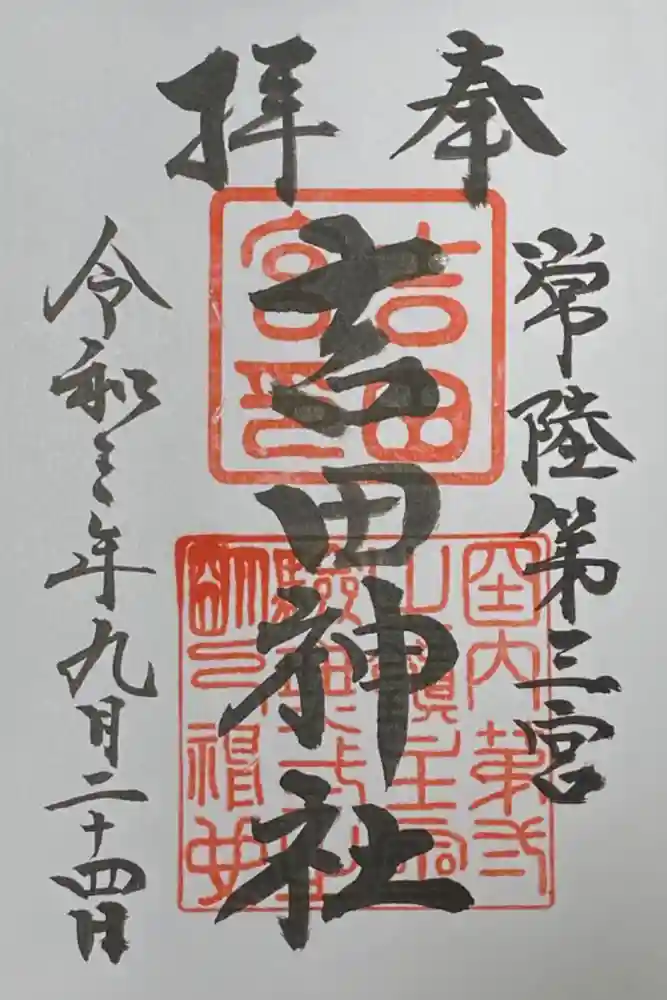 奉拝
常陸第三宮
吉田神社
令和三年九月二十四日
吉田
宮印